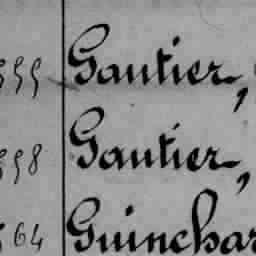 555 Gautier,
558 Gautier,
564 Guinchar